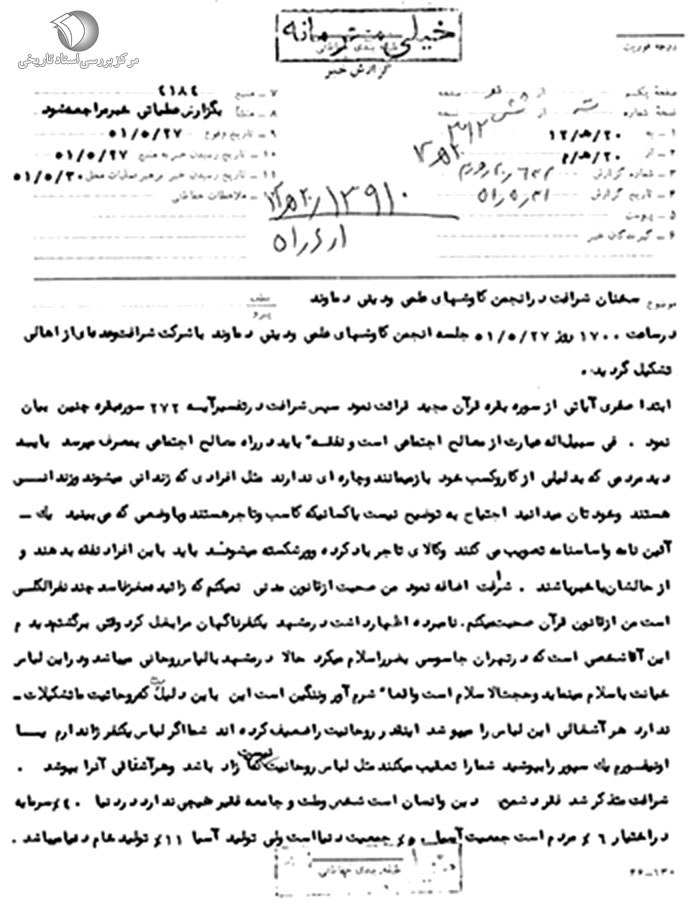 مرکز بررسی اسناد تاریخی
خیلی محرمانه
طبقه بندی حفاظتی
گزارش خبر
درجه فوریت
صفحه یکم از صفحه
نسخه شماره سه از شش نسخه
۱ ـ به ۱۲/ه‍/۲۰
۲ ـ از ۲۰/ه‍
۳ ـ شماره گزارش
۴ ـ تاریخ گزارش
۵ ـ پیوست
۶ ـ گیرندگان خبر
۷ ـ منبع ۴۱۸۴
۸ ـ منشأ بگزارش عملیاتی خبر مراجعه شود
۹ ـ تاریخ وقوع ۵۱/۵/۲۷
۱۰ ـ تاریخ رسیدن خبر به منبع ۵۱/۵/۲۷
۱۱ ـ تاریخ رسیدن خبر برهبر عملیات محل ۵۱/۵/۳۰
۱۲ ـ ملاحظات حفاظتی
۱۳۹۱۰
موضوع سخنان شرافت در انجمن کاوشهای علمی و دینی دماوند
عطف
پیرو
در ساعت ۱۷۰۰ روز ۵۱/۵/۲۷ جلسه انجمن کاوشهای علمی و دینی دماوند با شرکت شرافت و عده ای از اهالی
تشکیل گردید .
ابتدا صفری آیاتی از سوره بقره قرآن مجید قرائت نمود سپس شرافت در تفسیر آیه ۲۷۲ سوره بقره چنین بیان
نمود . فی سبیل اله عبارت از مصالح اجتماعی است و نفقه باید در راه مصالح اجتماعی بمصرف برسد باید
دید مردمی که بدلیلی از کار و کسب خود باز میمانند و چاره ای ندارند مثل افرادی که زندانی میشوند و زندانی
هستند و خودتان میدانید احتیاج به توضیح نیست یا کسانیکه کاسب و تاجر هستند و با وضعی که می بینید یک ـ
آئین نامه و اساسنامه تصویب می کنند و کالای تاجر باد کرده و ورشکسته میشوند باید باین افراد نفقه بدهند و
از حالشان با خبر باشند . شرافت اضافه نمود من صحبت از قانون مدنی نمیکنم که زائیده مغز فاسد چند نفر الکلی
است من از قانون قرآن صحبت میکنم . نامبرده اظهار داشت در مشهد یکنفر ناگهان مرا بغل کرد وقتی برگشتم دیدم
این آقا شخصی است که در تهران جاسوسی بضرر اسلام میکرد حالا در مشهد با لباس روحانی میباشد و در این لباس
خیانت باسلام مینماید و حجت الاسلام است واقعاً شرم آور و ننگین است این باین دلیل است که روحانیت ما تشکیلات ـ
ندارد هر آشغالی این لباس را میپوشد اینقدر روحانیت را ضعیف کرده اند شما اگر لباس یکنفر ژاندارم یا
اونیفورم یک سپور را بپوشید شما را تعقیب میکنند مثل لباس روحانیت نیست که آزاد باشد و هر آشغالی آنرا بپوشد .
شرافت متذکر شد فقر دشمن دین و انسان است شخص و ملت و جامعه فقیر هیچی ندارد در دنیا ۴۰٪ سرمایه
در اختیار ۶٪ مردم است جمعیت آسیا ۵۰٪ جمعیت دنیا است ولی تولید آسیا ۱۱٪ تولید خام دنیا میباشد .
طبقه بندی حفاظتی
۲۶ـ۱۳۰